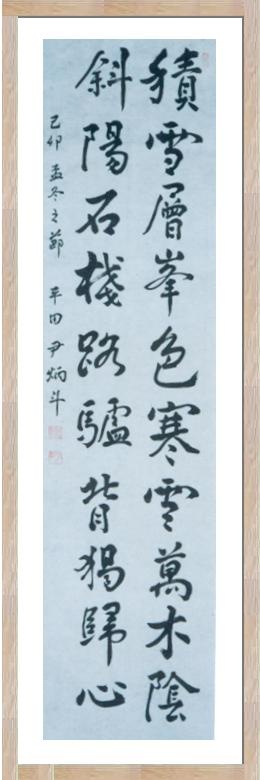 積雪層峯色寒雲萬木陰
斜陽石棧路驢背獨歸心
己卯孟冬之節 平田 尹炳斗